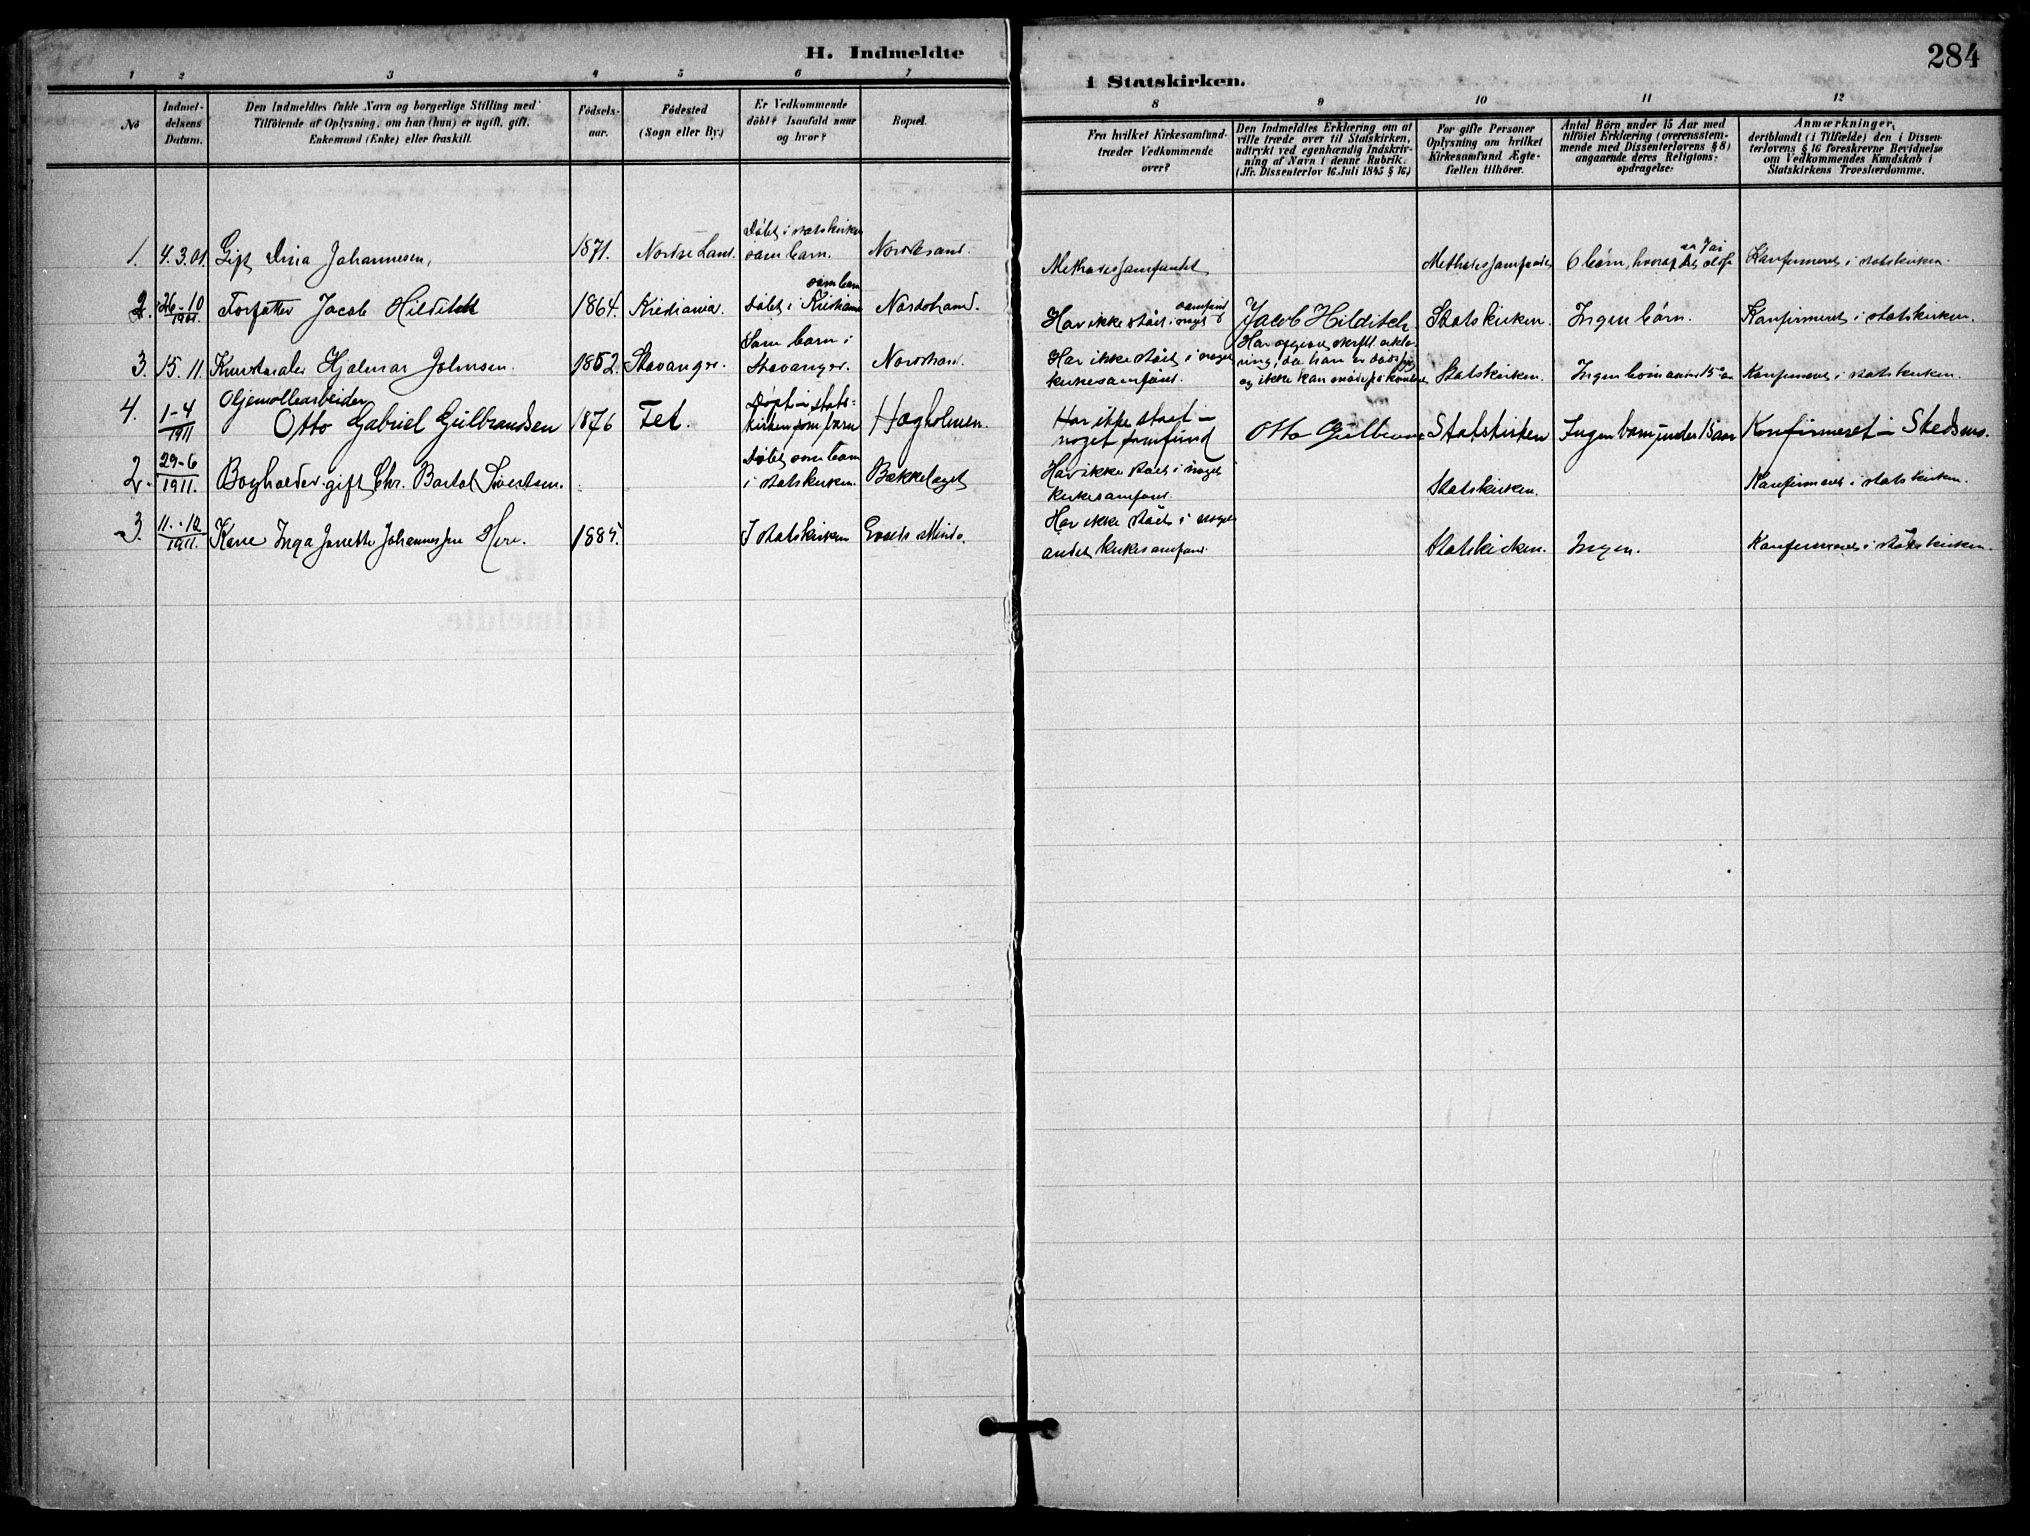 H. Indmeldte
i Statskirken.
284
1 2 3 4 5 6 7
8 9 10 11 12
No
Indmel-
delsens
Datum.
Den Indmeldtes fulde Navn og borgerlige Stilling med
Tilföiende af Oplysning, om han (hun) er ugift, gift,
Enkemand (Enke) eller fraskilt.
Födsels-
aar.
Födested
(Sogn eller By.)
Er Vedkommende
döbt? Isaafald naar
og hvor?
Bopæl.
Fra hvilket Kirkesamfund
træder Vedkommende
over?
Den Indmeldtes Erklæring om at
ville træde over til Statskirken,
udtrykt ved egenhændig Indskriv-
ning af Navn i denne Rubrik.
(Jfr. Dissenterlov 16 Juli 1845 § 16.)
For gifte Personer
Oplysning om hvilket
Kirkesamfund Ægte-
fællen tilhörer.
Antal Börn under 15 Aar med
tilföiet Erklæring (overensstem-
mende med Dissenterlovens § 8)
angaaende deres Religions-
opdragelse.
Anmærkninger,
deriblandt (i Tilfælde) den i Dissen-
terlovens § 16 foreskrevne Bevidnelse
om Vedkommendes Kundskab i
Statskirkens Troeslærdomme.
1. 4.3.01. Gift Dina Johannesen, 1871. Nordre Land.
Döbt i statskirken
som barn.
Nordstrand.
Methodistsamfundet
Methodistsamfundet
6 börn, hvoraf
Konfirmeret i statskirken.
2. 26-10
1901.
Forfatter Jacob Hilditch 1864. Kristiania.
som barn
Döbt i Kristiania
Nordstrand.
samfund
Har ikke stået i noget
Jacob Hilditch
Statskirken. Ingen börn. Konfirmeret i statskirken.
3. 15.11 Kunstmaler Hjalmar Johnsen. 1852. Stavanger.
Som barn i
Stavanger.
Nordstrand.
Har ikke stået i noget
kirkesamfund.
Har afgivet skriftl. erklæ-
ring, da han er
og ikke kan
Statskirken. Ingen börn under 15 år Konfirmeret i statskirken.
4. 1-4
1911
Oljemöllearbeider
Otto Gabriel Gulbrandsen 1876 Fet.
Döpt i stats-
kirken som barn
Hagholmen.
Har ikke staaet i
noget samfund
Otto Gulbran
Statskirken Ingen barn under 15 aar Konfirmeret i Skedsmo.
2. 29-6
1911.
Bogholder gift Chr. Bartol Sivertsen.
Döbt som barn
i statskirken.
Bækkelaget
Har ikke stået i noget
kirkesamfund.
Statskirken.
Konfirmeret i statskirken.
3. 11.-12
1911.
Kone Inga Janette Johannessen 1885.
I statskirken
Har ikke stået i noget
andet kirkesamfund.
Statskirken. Ingen. Konfirmeret i statskirken.